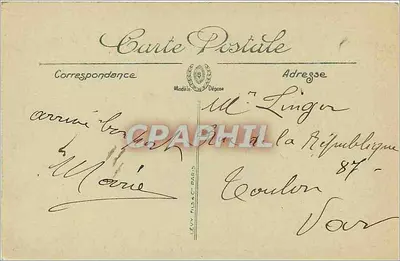 Carte Postale
Correspondance
Adresse
Modèle Déposé
arrivé
Marie
Mr Linger
Rue de la République
87
Toulon
Var
LEVY FILS & Cie PARIS
CPAPHIL